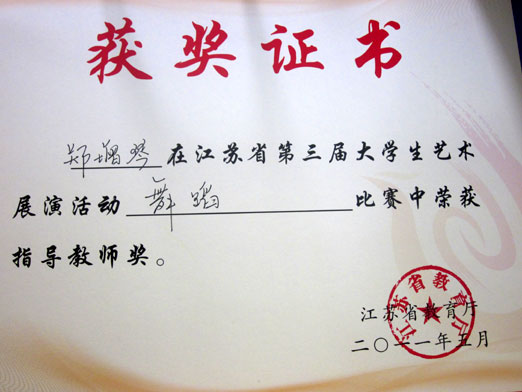 获奖证书
郑增琴在江苏省第三届大学生艺术
展演活动舞蹈比赛中荣获
指导教师奖。
江苏省教育厅
二〇一一年五月
江苏省教育厅